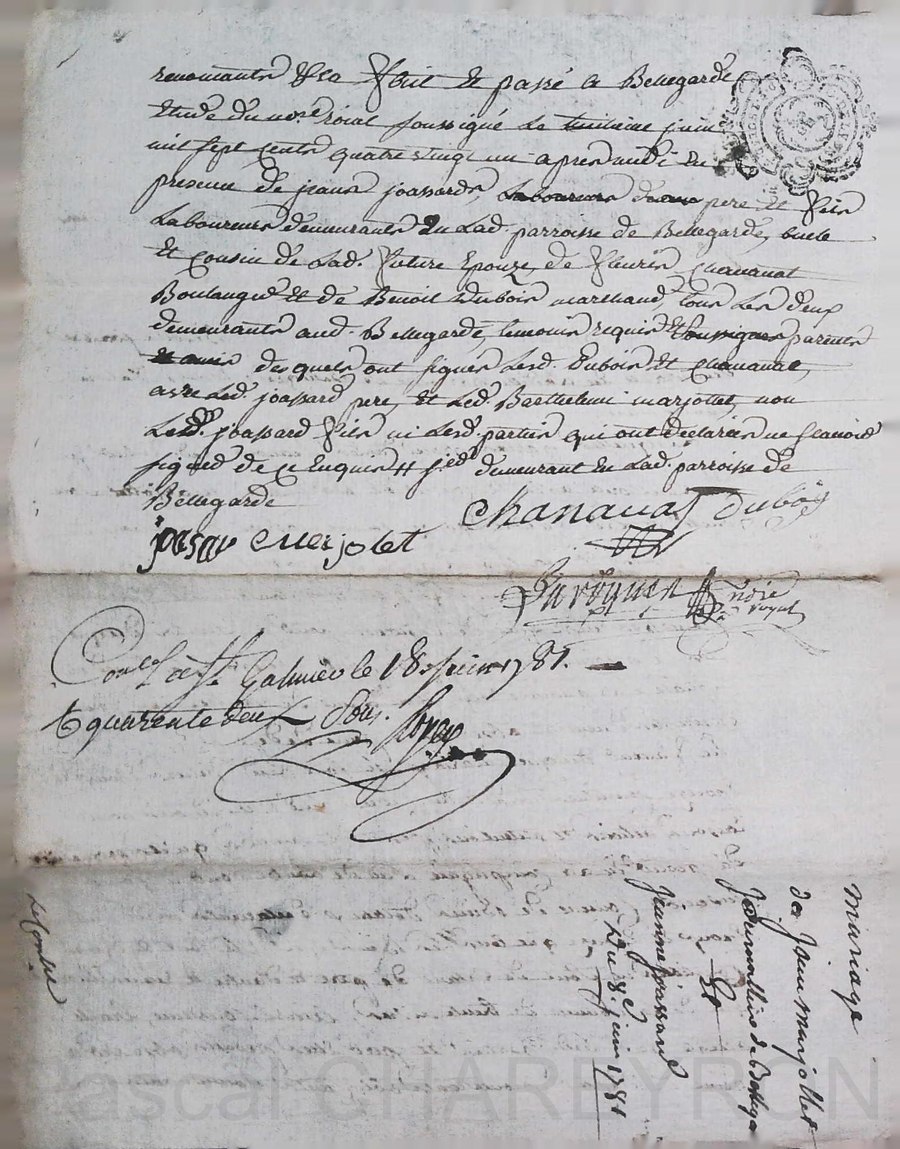 renonçants &ca Fait et passé a Bellegarde
Etude du no.re roial soussigné le huitieme juin
mil sept cents quatre vingt un apres midi en
presence de jeans joassards, Laboureurs pere et fils
Laboureurs demeurants en Lad. parroisse de Bellegarde, oncle
et cousin de Lad. future Epouze, de fleuris Chanavat
Boulanger et de Benoit Dubois marchand, tous les deux
demeurants aud. Bellegarde, temoins requis et soussignes parents
et amis desquels ont signes Lesd. Dubois et Chanavat,
avec Led. joassard pere, et Led. Barthelemi marjollet, non
Led. joassard fils ni Lesd. parties qui ont declarées ne scavoir
signer de ce Enquis demeurant en Lad. parroisse de
Bellegarde
Chanavat Duboy
joasar merjolet
no.re royal
Con.lé à St. Galmier le 18. juin 1781.
quarente deux Sous.
Mariage
de Jean Marjollet
de Bellega
Et
Jeanne joassard
Du 8.e juin 1781